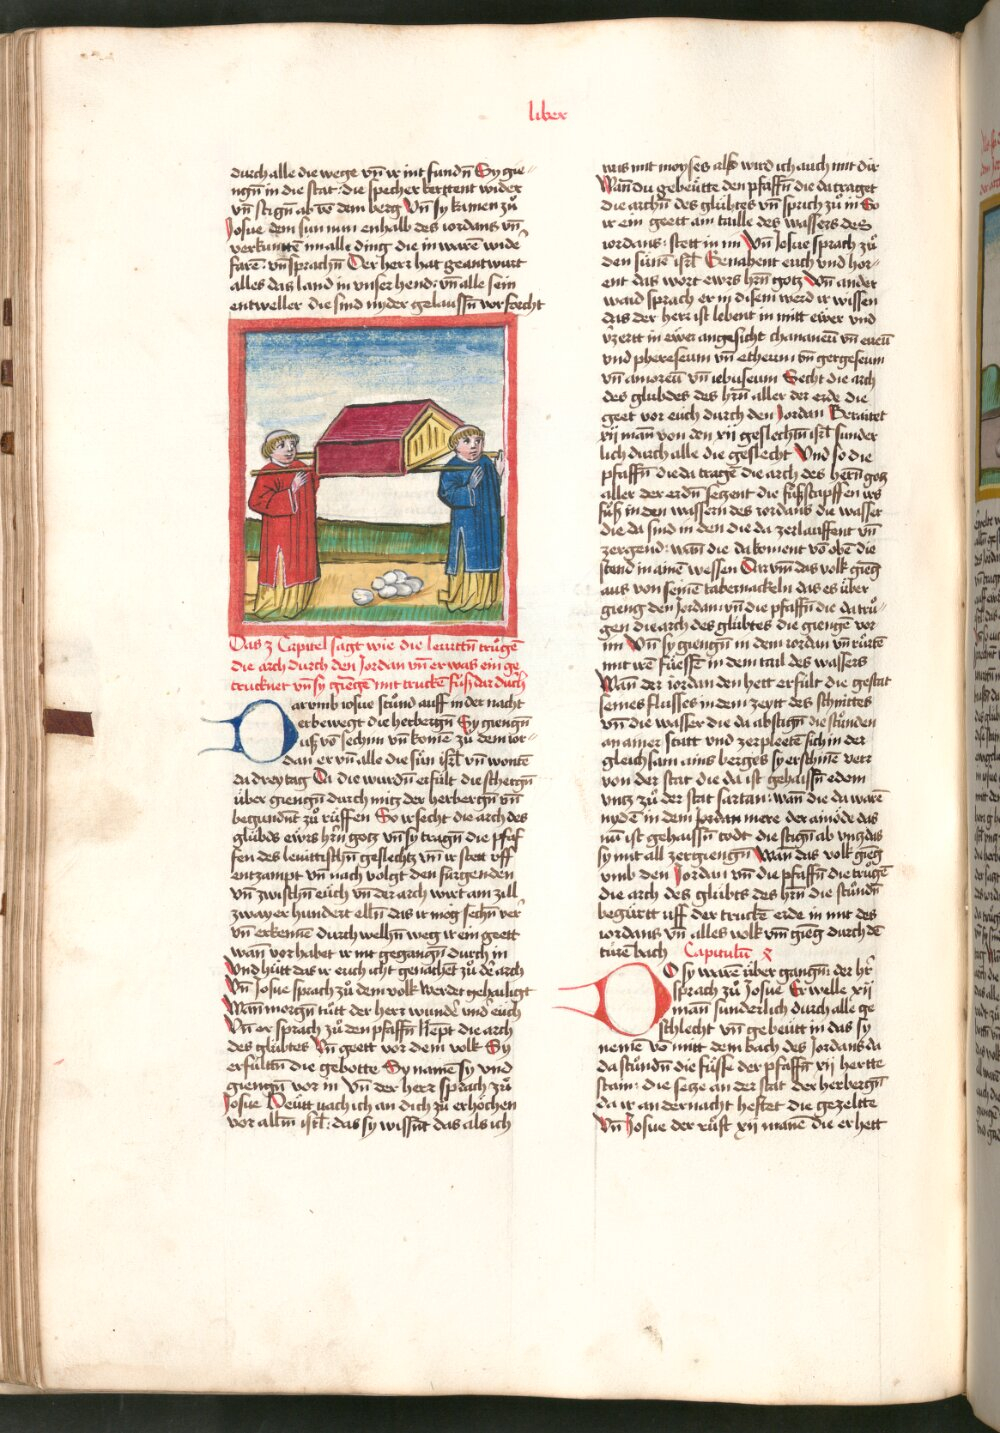 liber
durch alle die wege vn̄ ir nit fundn̄ Sy gie
ngn̄ in die stat · die specher kertent wider
vn̄ stign̄ ab vō dem berg Vn̄ sy kamen zů
Josue dem sun nun enhalb des iordans vn̄
verkuntē im alle ding die in warē wide
farē · vn̄ sprachn̄ Der herr hat geantwurt
alles das land in vnser hend · vn̄ alle sein
entweller die sind nyder gelaussn̄ vor forcht
Das 3 Capitel sagt wie die leuittn̄ trůgē
die arch durch den Jordan vn̄ er was ein ge
trucknet vn̄ sy giēgē mit truckē fůß dar durch
Darvmb iosue stůnd auff in der nacht
er bewegt die herbergn̄ Sy giengn̄
auß vō sechim vn̄ komē zů dem ior
dan er vn̄ alle die sün isrl̄ vn̄ wontē
da drey tag Da die wurdn̄ erfült die schergn̄
über giengn̄ durch mitz der herbergn̄ vn̄
begundnt zů rüffen So ir secht die arch des
glübds ewrs hrn̄ gotz vn̄ sy tragn̄ die pfaf
fen des leuittischn̄ geslechtz vn̄ ir stett vff
entzampt vn̄ nach volgt den fürgenden
vn̄ zwischn̄ eüch vn̄ der arch wirt am zill
zwayer hundert elln̄ das ir mög sechn̄ ver
vn̄ erkennē durch welhn̄ weg ir ein geett
wān vor habet ir nit gegangn̄ durch in
Vnd hütt das ir euch icht genachēt zů dē arch
Vn̄ Josue sprach zů dem volk werdet gehailigt
Wann morgn̄ tůtt der herr wundē vndē eüch
Vn̄ er sprach zů den pfaffn̄ Hept die arch
des glübtes Vn̄ geett vor dem volk Sy
erfültn̄ die gebotte Sy namē sy vnd
giengn̄ vor in Vn̄ der herr sprach zů
Josue Heütt vach ich an dich zů erhöchen
vor allm̄ isrl̄ : das sy wissnt das als ich
was mit moyses alß wird ich auch mit dir
Wan̄ du gebeütte den pfaffn̄ die da traget
die archn̄ des glübtes vn̄ sprich zů in So
ir ein geett am taille des wassers des
iordans : stett in im Vn̄ Josue sprach zů
den sünē isrl̄ Genahent euch vnd hor
ent das wort ewrs hrn̄ gotz Vn̄ ander
waid sprach er in disem werd ir wissen
das der herr ist lebent in mitt eüwer vnd
v̈zertt in ëwer angesicht chananeū vn̄ eueū
vnd phereseum vn̄ etheum vn̄ gergeseum
vn̄ amoreū vn̄ iebuseum Secht die arch
des glubdes des hrn̄ aller der erde die
geet vor eüch durch den Jordan Beraitet
xij man̄ von den xij geslechtn̄ isrl̄ sunder
lich durch alle die geslecht Vnd so die
pfaffn̄ die da tragē die arch des herrn̄ gotz
aller der erdn̄ setzent die fůßstapffen irs
fůß in den wassern des iordans die wasser
die da sind in den die da zerlauffent vn̄
zergend : wan̄ die da koment vō obē die
stend in ainē wessen Darvm̄ das volk giēg
aus von seinē tabernackeln das es über
gieng den Jordan : vn̄ die pfaffn̄ die da trů
gen die arch des glübtes die giengē vor
im Vn̄ sy giengn̄ in dem iordan vn̄ rürtē
mit irē füessē in dem tail des wassers
Wan̄ der iordan den hett erfült die gestat
seines flusses in dem zeytt des schnittes
vn̄ die wasser die da abstign̄ die stůnden
an ainer statt vnd zerpleetē sich in der
gleichsam ains berges sy erschinē verr
von der stat die da ist gehaissn̄ edom
vntz zů der stat sartan : wan̄ die da warē
nydē in dem Jordan mere der ainöde das
nū ist gehaissn̄ todt die stign̄ ab vntz das
sy mit all zergiengn̄ Wan̄ das volk giēg
vmb den Jordan vn̄ die pfaffn̄ die trůgē
die arch des glübts des hrn̄ die stůndn̄
begürtt uff der truckē erde in mit des
iordans vn̄ alles volk vm̄ giēg durch dē
türēn bach Capitulū x̄
Do sy warē über gangn̄ : der hr̄
sprach zů Josue Erwelle xij
man̄ sunderlich durch alle ge
schlecht vn̄ gebeütt in das sy
nemē vō mitt dem bach des Jordans da
da stůndn̄ die füsse der pfaffn̄ xij hertte
stain : die setze an der stat der herbergn̄
da ir an der nacht heftet die gezeltte
Vn̄ Josue der růft xij manē die er hett